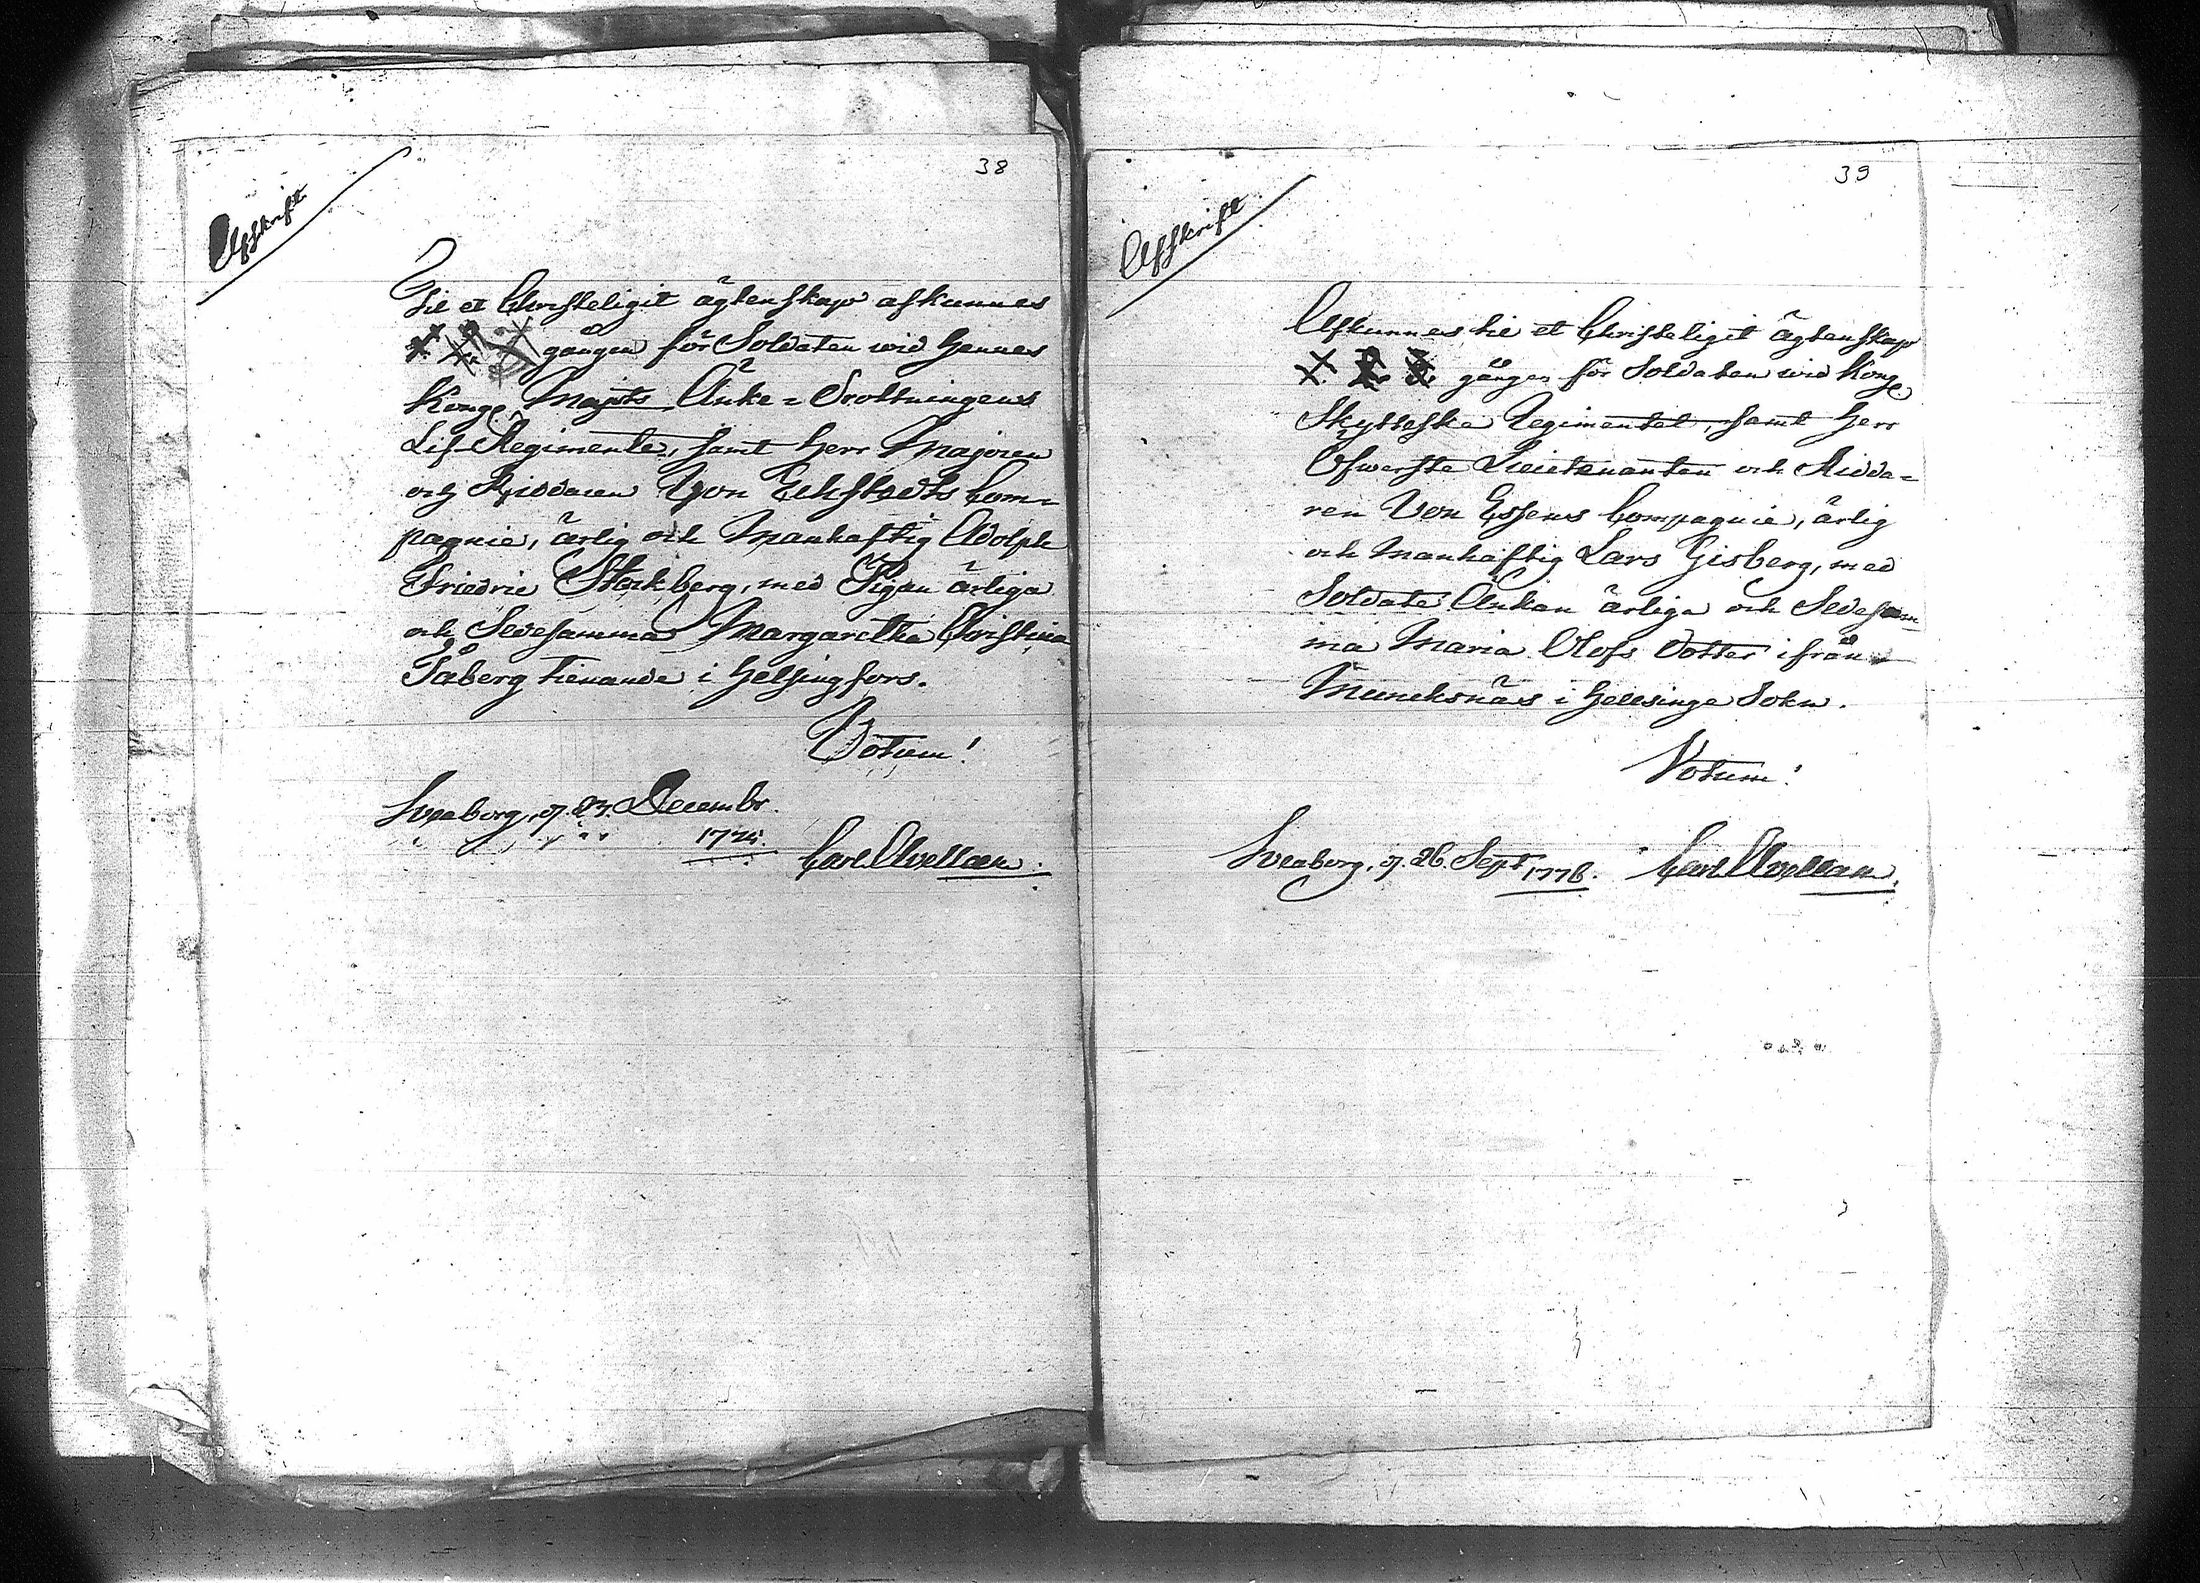 38
Afskrift
Til et Christeligit ägtenskap afkunnes
1. 2. 3. gången för Soldaten wid Hennes
Kongl. Majsts Änke=Drottningens
Lif-Regimente, samt Herr Majoren
och Riddaren Von Eckstedts Com=
pagnie, ärlig och Manhaftig Adolph
Friedric Stockberg, med Pigan ärliga
och Sedesamma Margaretha Christina
Taberg tienande i Helsingfors.
Votum!
Sveaborg, d. 23. Decembr.
Carl Avellan.
39
Afskrift
Afkunnes til et Christeligit ägtenskap
1. 2. 3. gången för Soldaten wid Kongl.
Skytteske Regimentet, samt Herr
Öfwerste Lieutenanten och Ridda=
ren Von Essens Compagnie, ärlig
och Manhaftig Lars Gisberg, med
Soldate Änkan ärliga och Sedesam=
ma Maria Olofs Dotter ifrån
Muncksnäs i Hellsinge Sokn.
Votum!
Sveaborg, d. 26. Sept. 1776. Carl Avellan.